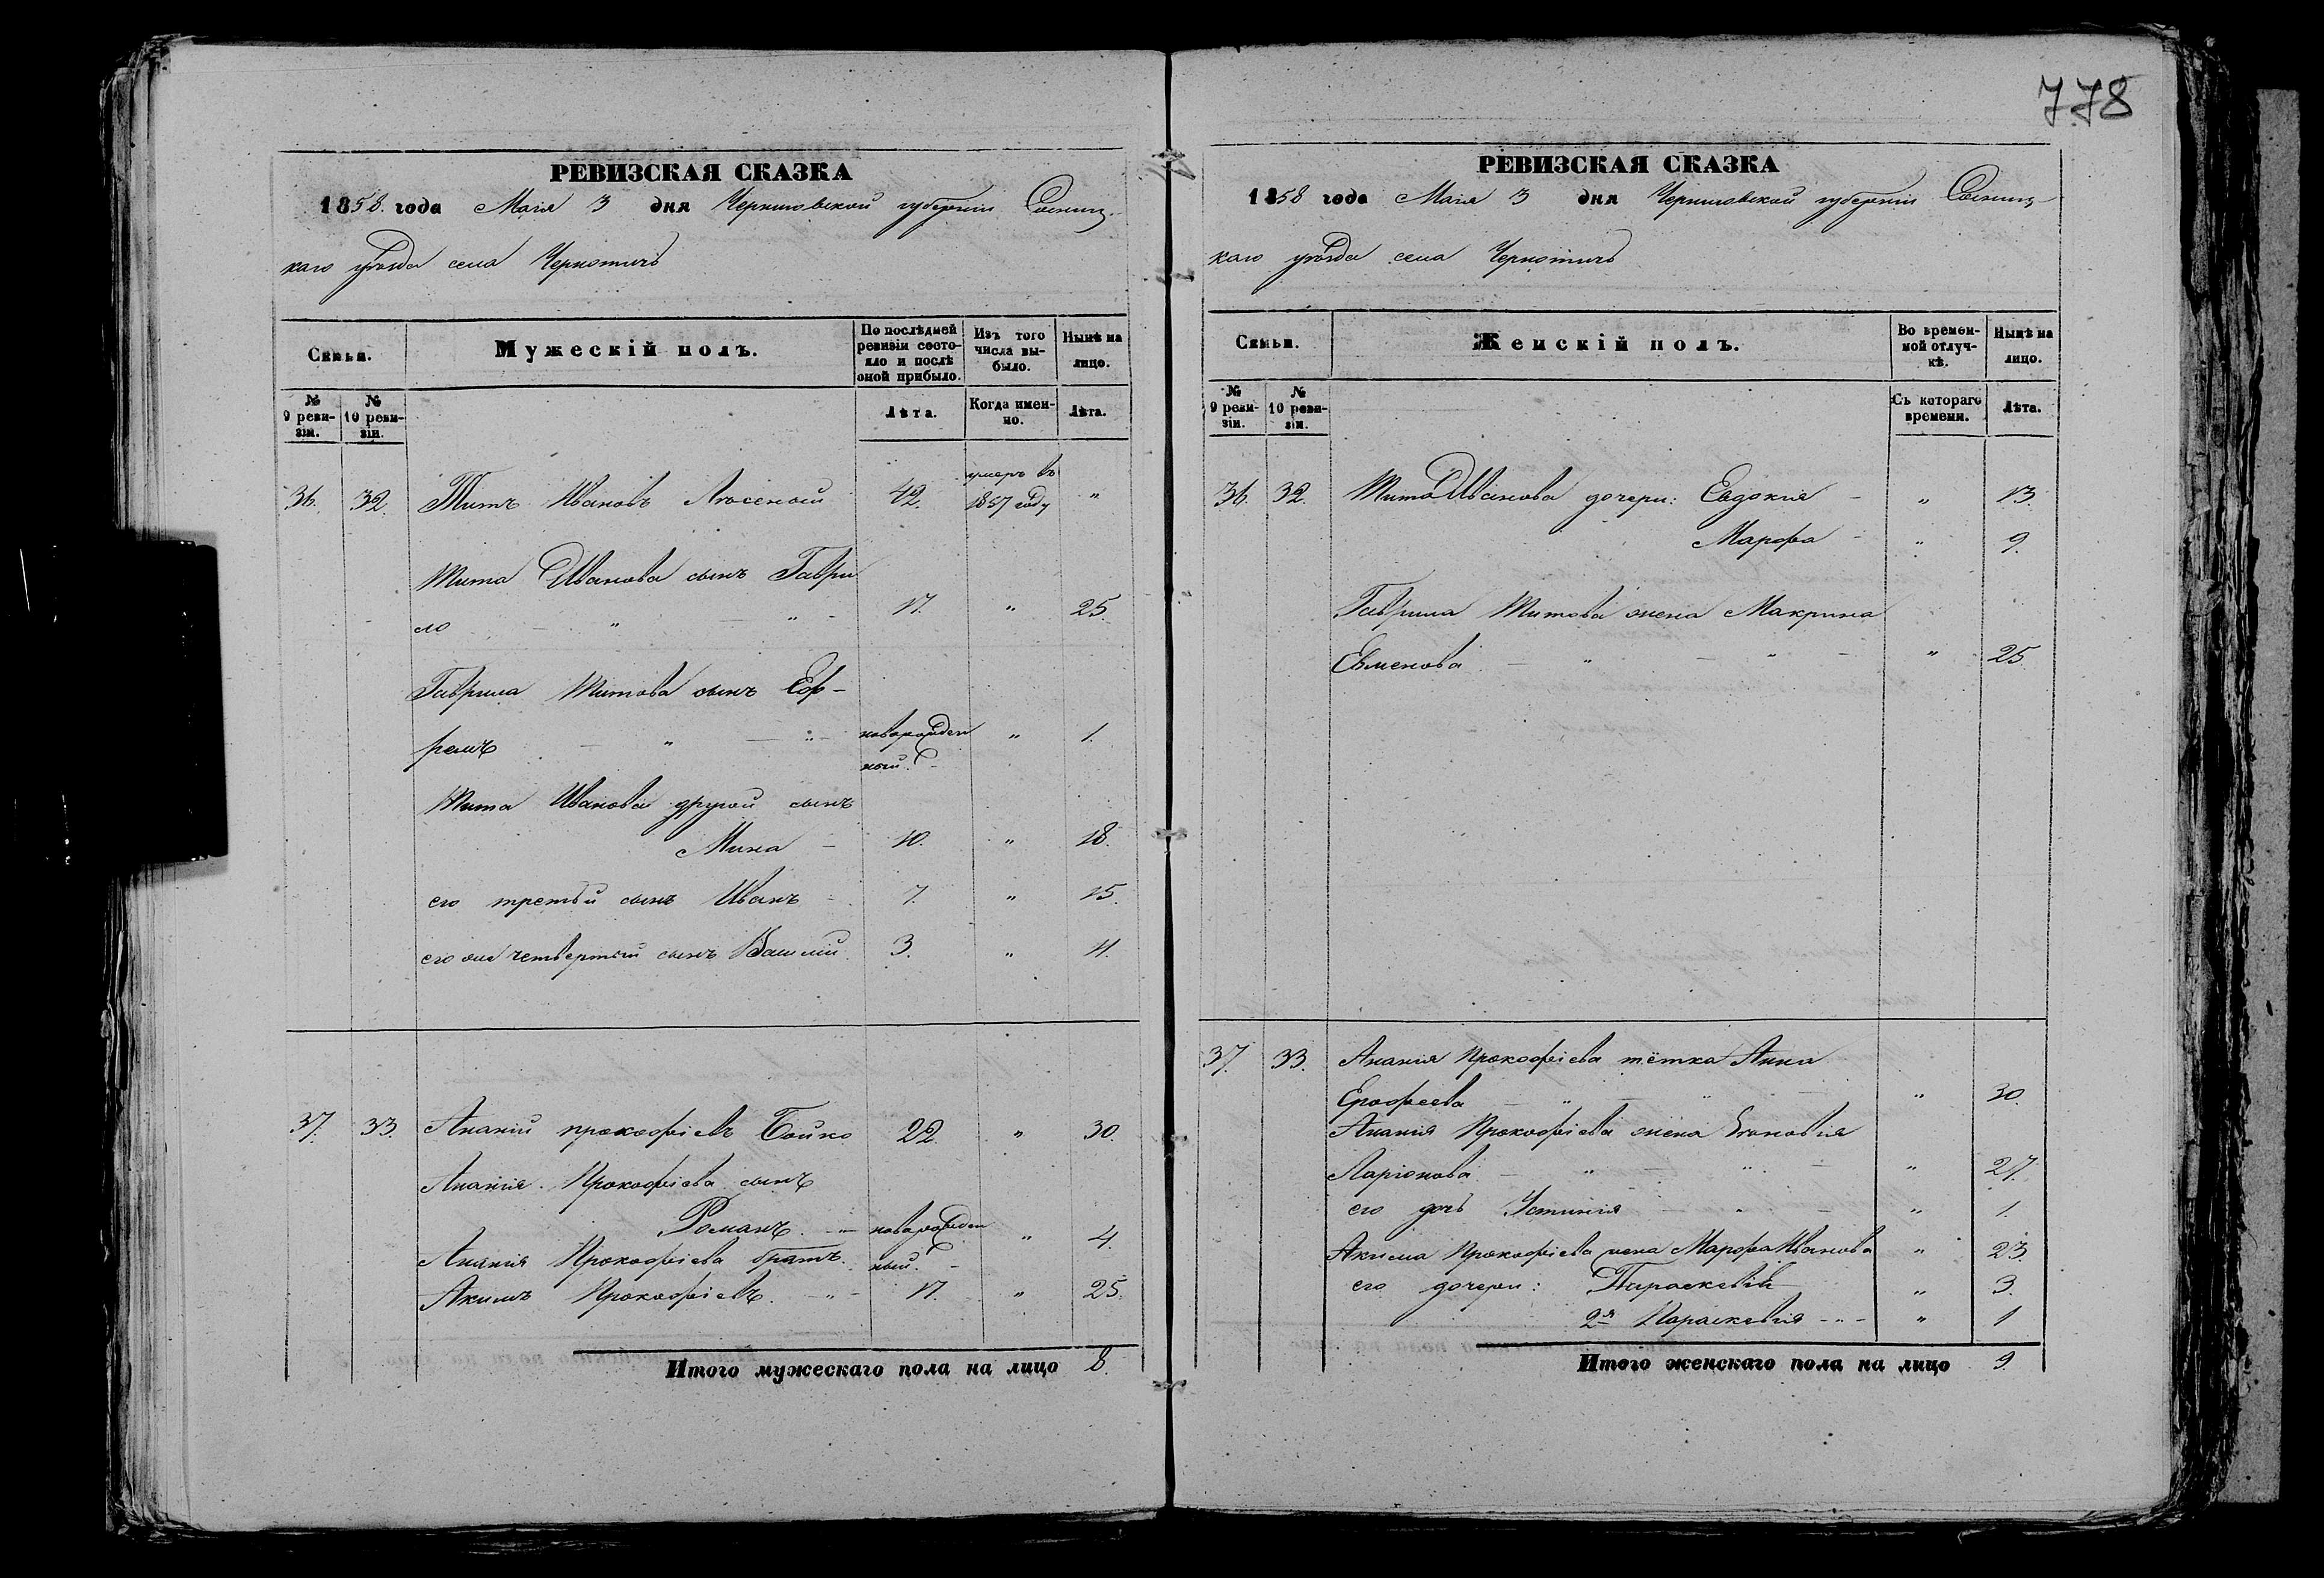 778
РЕВИЗСКАЯ СКАЗКА
1858. года Маія 3 дня Черниговской губерніи Сосниц-
каго уѣзда села Чернотичъ
Семьи. Мужескій полъ. По послѣдней ревизіи состояло и послѣ оной прибыло. Изъ того числа выбыло. Нынѣ на лицо.
№ 9 ревизіи. № 10 ревизіи. Лѣта. Когда именно. Лѣта.
умеръ въ
36. 32. Титъ Ивановъ 42. 1857 году "
Тита Иванова сынъ Гаври
ло " " 17. " 25.
Гаврила Титова сынъ Еф-
ремъ " " новорожден " 1.
ный.
Тита Иванова другой сынъ
Мина 10. " 18.
его третьй сынъ Иванъ 7. " 15.
его же четвертый сынъ Василій 3. " 11.
37. 33. Ананій прокофіевъ Бойко 22. " 30.
Ананія Прокофіева сынъ
Романъ. новорожден " 4.
Ананія Прокофіева братъ. ный.
Акимъ Прокофіевъ. 17. " 25.
Итого мужескаго пола на лицо 8.
РЕВИЗСКАЯ СКАЗКА
1858 года Маія 3 дня Черниговской губерніи Сосниц-
каго уѣзда села Чернотичъ
Семьи. Женскій полъ. Во временной отлучкѣ. Нынѣ на лицо.
№ 9 ревизіи. № 10 ревизіи. Съ котораго времени. Лѣта.
36. 32. Тита Иванова дочери: Евдокія " 13.
Марфа " 9.
Гаврила Титова жена Макрина
Евменова " " " 25
37. 33. Ананія Прокофіева тётка Анна
Ерофеева " " " 30.
Ананія Прокофіева жена
Ларіонова " " " 27.
его дочь Устинія " " 1.
Акима Прокофіева жена Марфа Иванова " 23.
его дочери: Параскевія " 3.
2я Параскевія " " 1
Итого женскаго пола на лицо 9.